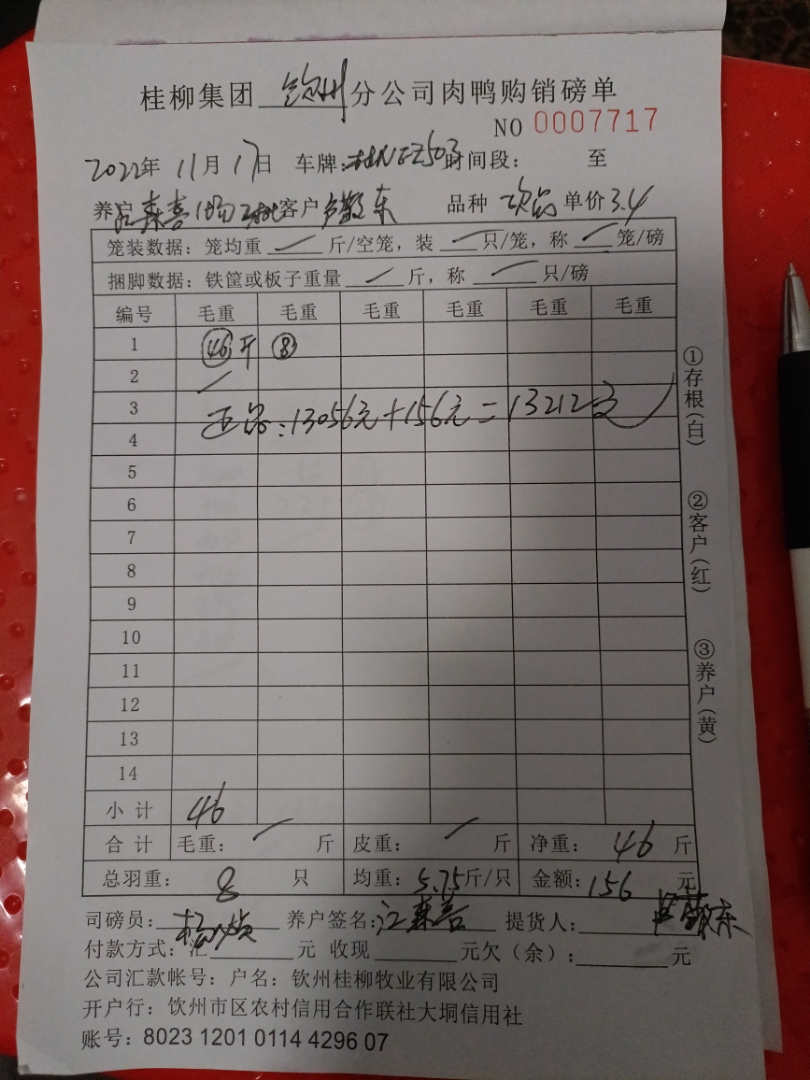 桂柳集团 钦州 分公司肉鸭购销磅单
NO 0007717
2022年 11月 17日 车牌: 时间段: 至
养户 客户 东 品种 次品 单价 3.4
笼装数据: 笼均重 斤/空笼, 装 只/笼, 称 笼/磅
捆脚数据: 铁筐或板子重量 斤, 称 只/磅
编号 毛重 毛重 毛重 毛重 毛重 毛重
1 46斤 8
2
3 正品: 13056元+156元=13212元
4
5
6
7
8
9
10
11
12
13
14
小计 46
合计 毛重: 斤 皮重: 斤 净重: 46 斤
总羽重: 8 只 均重: 5.75斤/只 金额: 156 元
司磅员: 养户签名: 江森喜 提货人: 东
付款方式: 汇 元 收现 元欠(余): 元
公司汇款帐号: 户名: 钦州桂柳牧业有限公司
开户行: 钦州市区农村信用合作联社大垌信用社
账号: 8023 1201 0114 4296 07
①存根(白)
②客户(红)
③养户(黄)